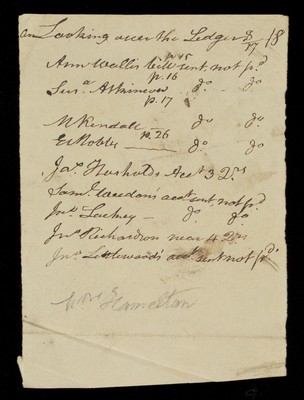 on Looking over the Ledger 8/17/18
p. 15
Ann Wallis bill sent, not pd
p. 16
Susa Atkinson do do
p. 17
M Kendall do do
Ed Nobles p. 26 — do
Jas Hasholds Acct 3 2rs
Saml acct sent, not pd
Jos Lackey — do do
Jno Richardson near 4 2rs
Jno Littlewoods acct sent not pd
Wm Hamelton